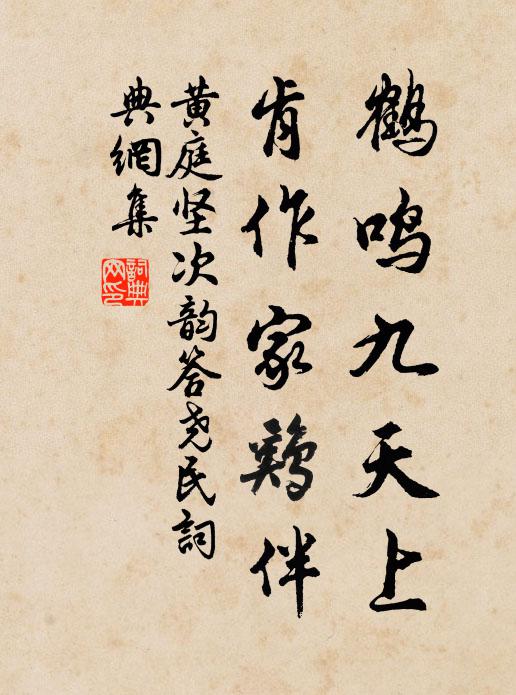 鶴鸣九天上
肯作家鷄伴
黄庭坚次韵答尧民詞
典網集
詞典
网印